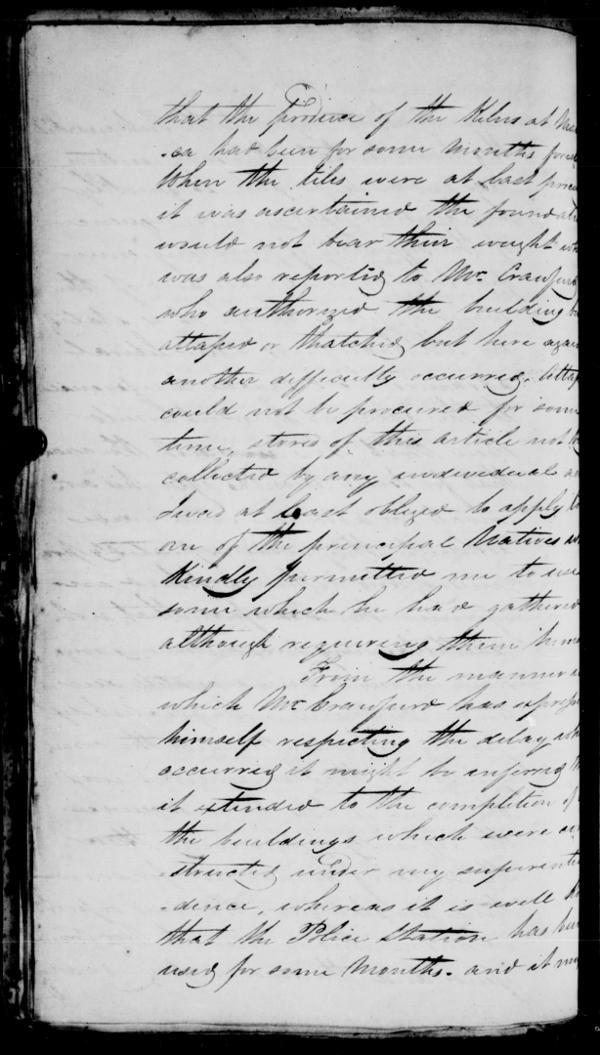 that the Produce of the Kilns at
-ca had been for some Months
When the tiles were at last
it was ascertained the foundati
would not bear their weight
was also reported to Mr. Crawfurd
who authorized the building
attaped or thatched, but here again
another difficulty occurred, Attap
could not be procured for some
time, stores of this article not
collected by any individual
I was at last obliged to apply
one of the principal Natives
kindly permitted me to use
some which he had gathered
although requiring them
From the manner
which Mr. Crawfurd has expre
himself respecting the delay
occurred it might be inferred
it extended to the completion of
the buildings which were
-structed under my superinten
-dence, whereas it is well
that the Police Station has been
used for some Months. and it